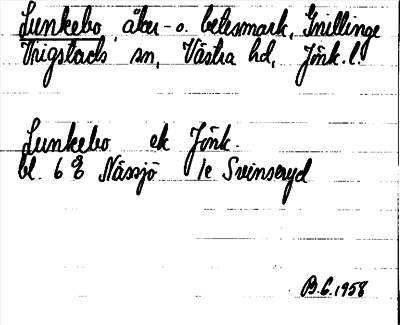 Lunkebo åker- o. betesmark, Gnillinge
Vrigstads sn, Västra hd, Jönk. l.
Lunkebo ek Jönk.
bl. 6 E Nässjö 1e Svinseryd
B.G. 1958